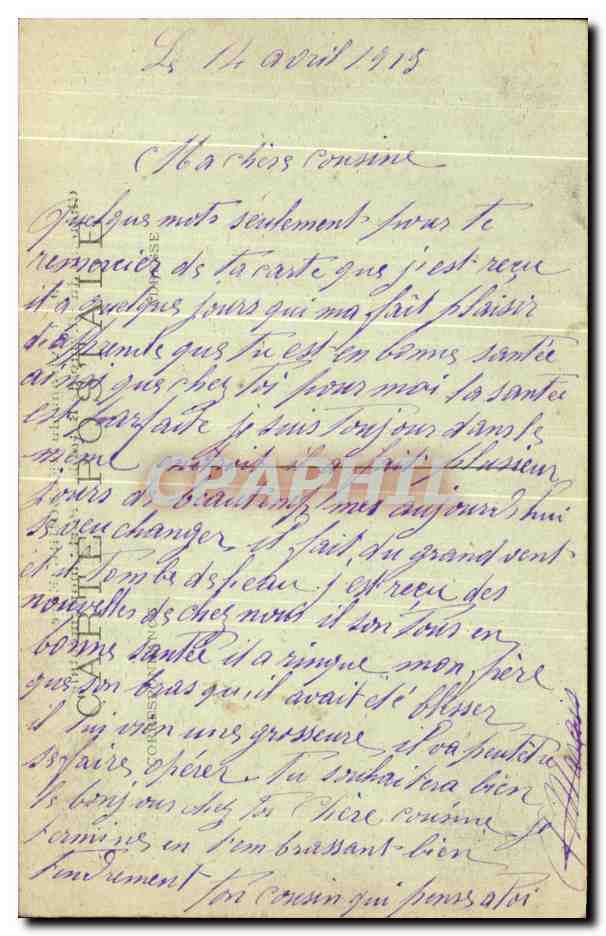 Le 14 avril 1915
Ma chère cousine
quelques mots seulement pour te
remercier de ta carte que j'est reçu
il a quelques jours qui ma fait plaisir
d'aprendre que tu est en bonne santée
ainsi que chez toi pour moi la santée
est parfaite je suis toujour dans le
même il a fait plusieur
jours de beau temp mes aujourd'hui
sa veu changer il fait du grand vent
et il tombe de l'eau j'est reçu des
nouvelles de chez nous il son tous en
bonne santée il a rinque mon père
que son bras qu'il avait été blesser
il lui vien une grosseure il va peutetre
se faire opérer Tu souhaitera bien
le bonjour chez toi Chère cousine je
termine en t'embrassant bien
tendrement
Ton cousin qui pense a toi
CARTE POSTALE
CORRESPONDANCE
ADRESSE
CPAPHIL